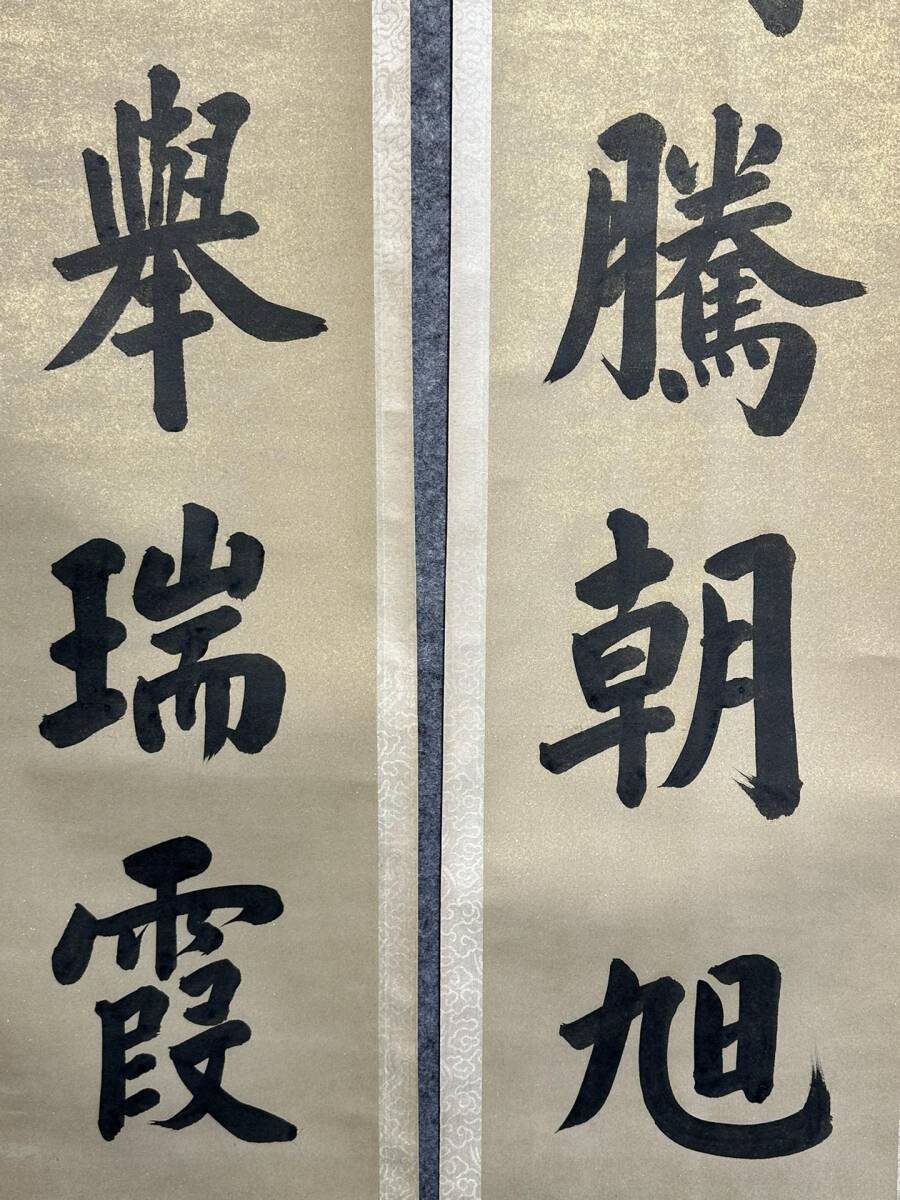 騰朝旭
舉瑞霞